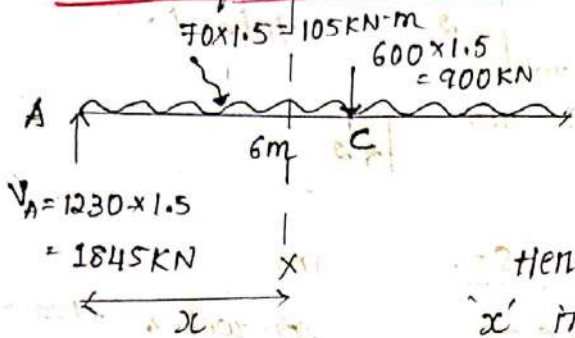 70×1.5 = 105KN-m
600×1.5
= 900KN
A
6m
C
V_A = 1230×1.5
= 1845KN
X
Hen
x
'x' in